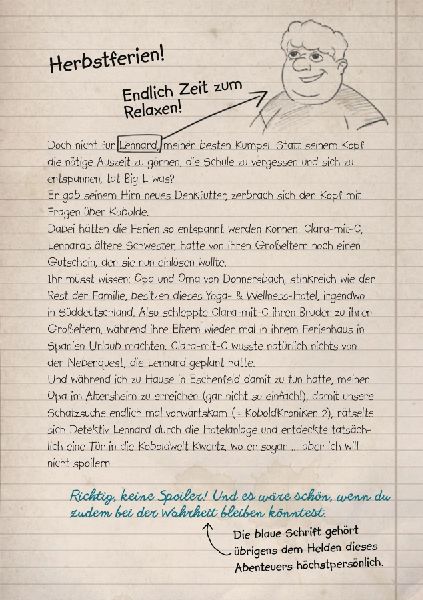 Herbstferien!
Endlich Zeit zum
Relaxen!
Doch nicht für Lennard, meinen besten Kumpel. Statt seinem Kopf
die nötige Auszeit zu gönnen, die Schule zu vergessen und sich zu
entspannen, tat Big L was?
Er gab seinem Hirn neues Denkfutter, zerbrach sich den Kopf mit
Fragen über Kobolde.
Dabei hätten die Ferien so entspannt werden können. Clara-mit-C,
Lennards ältere Schwester, hatte von ihren Großeltern noch einen
Gutschein, den sie nun einlösen wollte.
Ihr müsst wissen: Opa und Oma von Donnersbach, stinkreich wie der
Rest der Familie, besitzen dieses Yoga- & Wellness-Hotel, irgendwo
in Süddeutschland. Also schleppte Clara-mit-C ihren Bruder zu ihren
Großeltern, während ihre Eltern wieder mal in ihrem Ferienhaus in
Spanien Urlaub machten. Clara-mit-C wusste natürlich nichts von
der Nebenquest, die Lennard geplant hatte.
Und während ich zu Hause in Eschenfeld damit zu tun hatte, meinen
Opa im Altersheim zu erreichen (gar nicht so einfach!), damit unsere
Schatzsuche endlich mal vorwärtskam (= KoboldKroniken 2), rätselte
sich Detektiv Lennard durch die Hotelanlage und entdeckte tatsäch-
lich eine Tür in die Koboldwelt Kwertz, wo er sogar ... aber ich will
nicht spoilern.
Richtig, keine Spoiler! Und es wäre schön, wenn du
zudem bei der Wahrheit bleiben könntest.
Die blaue Schrift gehört
übrigens dem Helden dieses
Abenteuers höchstpersönlich.